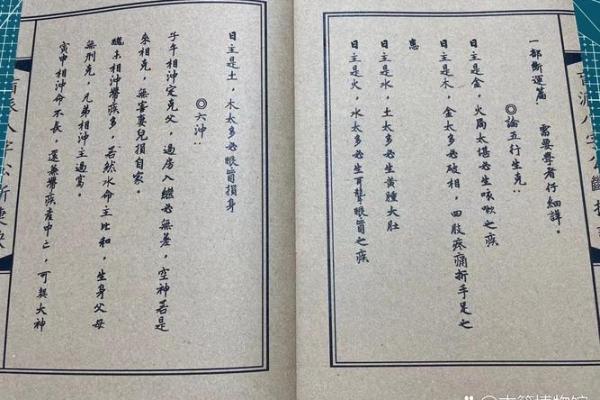 一部斷運篇　需要學者仔細譯。
◎論五行生克：
日主是金，火局太堪必生咳嗽之疾
日主是木，金太多必破相，四肢疼痛折手足之
患
日主是水，土太多必生黃腫大肚
日主是火，水太多必生耳聾眼盲之疾
日主是土，木太多必眼盲損身
◎六沖：
子午相沖定克父，過房入繼必無差，空神若是
來相克，無害妻兒損自家。
醜未相沖帶疾多，若然水命主比和，生身父母
無刑克，兄弟相沖主過寡。
寅申相沖命不長，還兼帶疾產中亡，可與大神